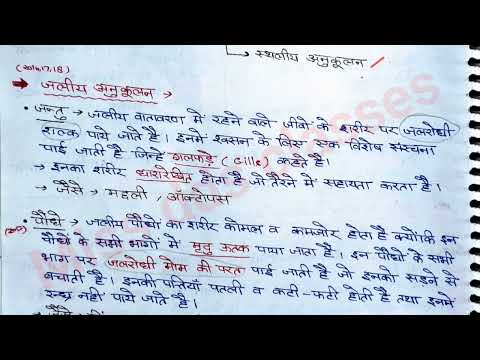 → स्थलीय अनुकूलन
(2016,17,18)
→ जलीय अनुकूलन →
• जन्तु → जलीय वातावरण में रहने वाले जीवों के शरीर पर जलरोधी
शल्क पाये जाते है। इनमें श्वसन के लिए एक विशेष संरचना
पाई जाती है जिन्हें गलफड़े (Gills) कहते है।
→ इनका शरीर धारारेखित होता है जो तैरने में सहायता करता है।
→ जैसे → मछली, आक्टोपस
• पौधे → जलीय पौधों का शरीर कोमल व कमजोर होता है क्योंकि इन
पौधों के सभी भागों में मृदु ऊतक पाया जाता है। इन पौधों के सभी
भाग पर जलरोधी मोम की परत पाई जाती है जो इनको सड़ने से
बचाती है। इनकी पत्तियां पतली व कटी-फटी होती है तथा इनमें
रन्ध्र नहीं पाये जाते है।